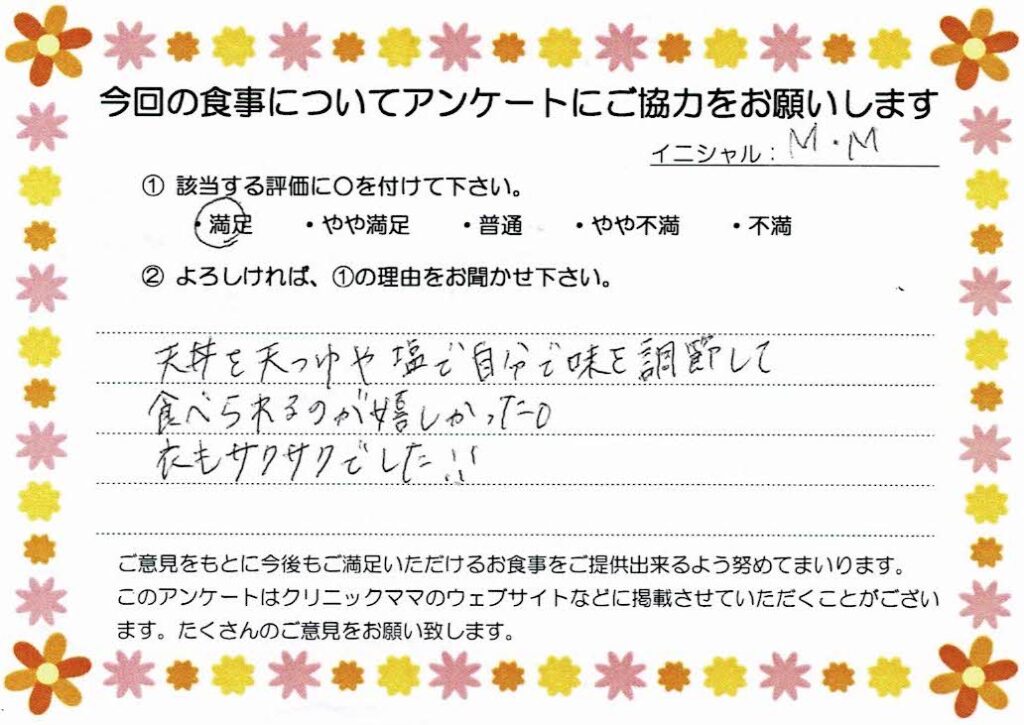 今回の食事についてアンケートにご協力をお願いします
イニシャル：M・M
① 該当する評価に〇を付けて下さい。
・満足　・やや満足　・普通　・やや不満　・不満
② よろしければ、①の理由をお聞かせ下さい。
天丼を天つゆや塩で自分で味を調節して
食べられるのが嬉しかった。
衣もサクサクでした!!
ご意見をもとに今後もご満足いただけるお食事をご提供出来るよう努めてまいります。
このアンケートはクリニックママのウェブサイトなどに掲載させていただくことがござい
ます。たくさんのご意見をお願い致します。